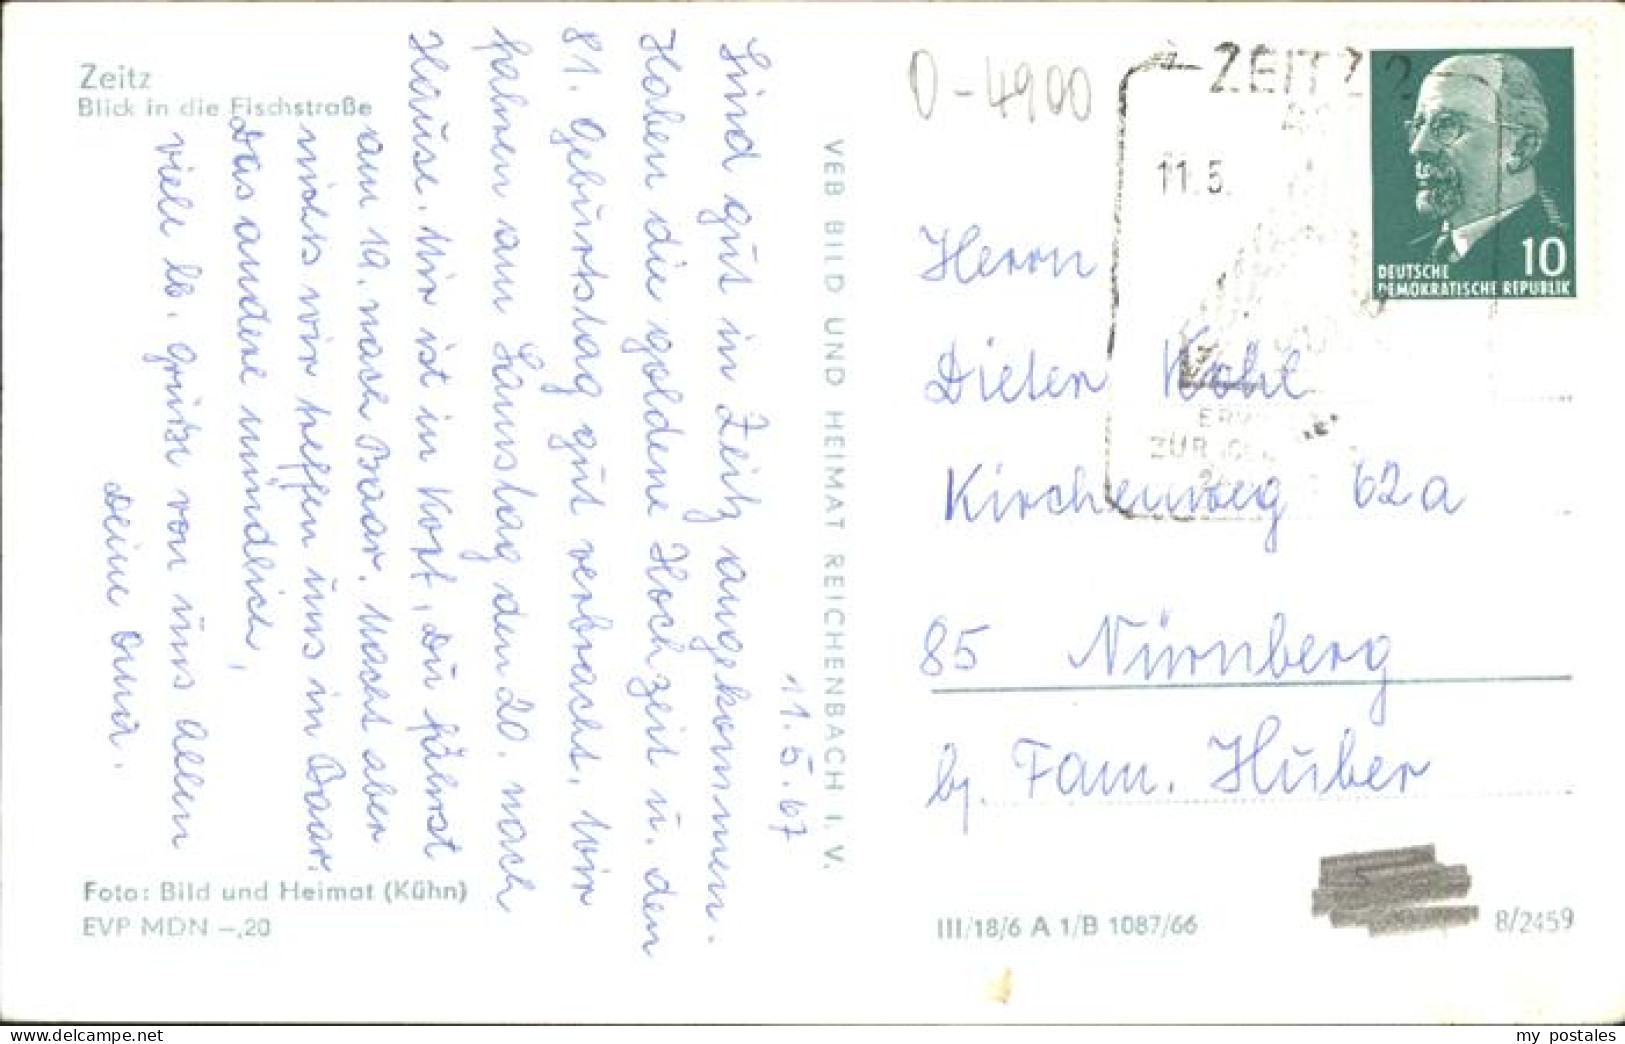 Zeitz
Blick in die Fischstraße
11.5.67
Sind gut in Zeitz angekommen.
Haben die goldene Hochzeit u. den
81. Geburtstag gut verbracht. Wir
fahren am Samstag den 20. nach
Hause. Wir ist in Kopt, Du fährst
am 19. nach Baar. Macht aber
nichts wir treffen uns in Baar.
Das andere mündlich,
viele lb. Grüße von uns allen
Deine Omi.
Foto: Bild und Heimat (Kühn)
EVP MDN –,20
VEB BILD UND HEIMAT REICHENBACH I. V.
O-4900
ZEITZ 2
11.5.
ZUR
10
DEUTSCHE
DEMOKRATISCHE REPUBLIK
Herrn
Dieter Kohl
Kirchenweg 62a
85 Nürnberg
bj. Fam. Huber
III/18/6 A 1/B 1087/66
8/2459
www.delcampe.net
my_postales